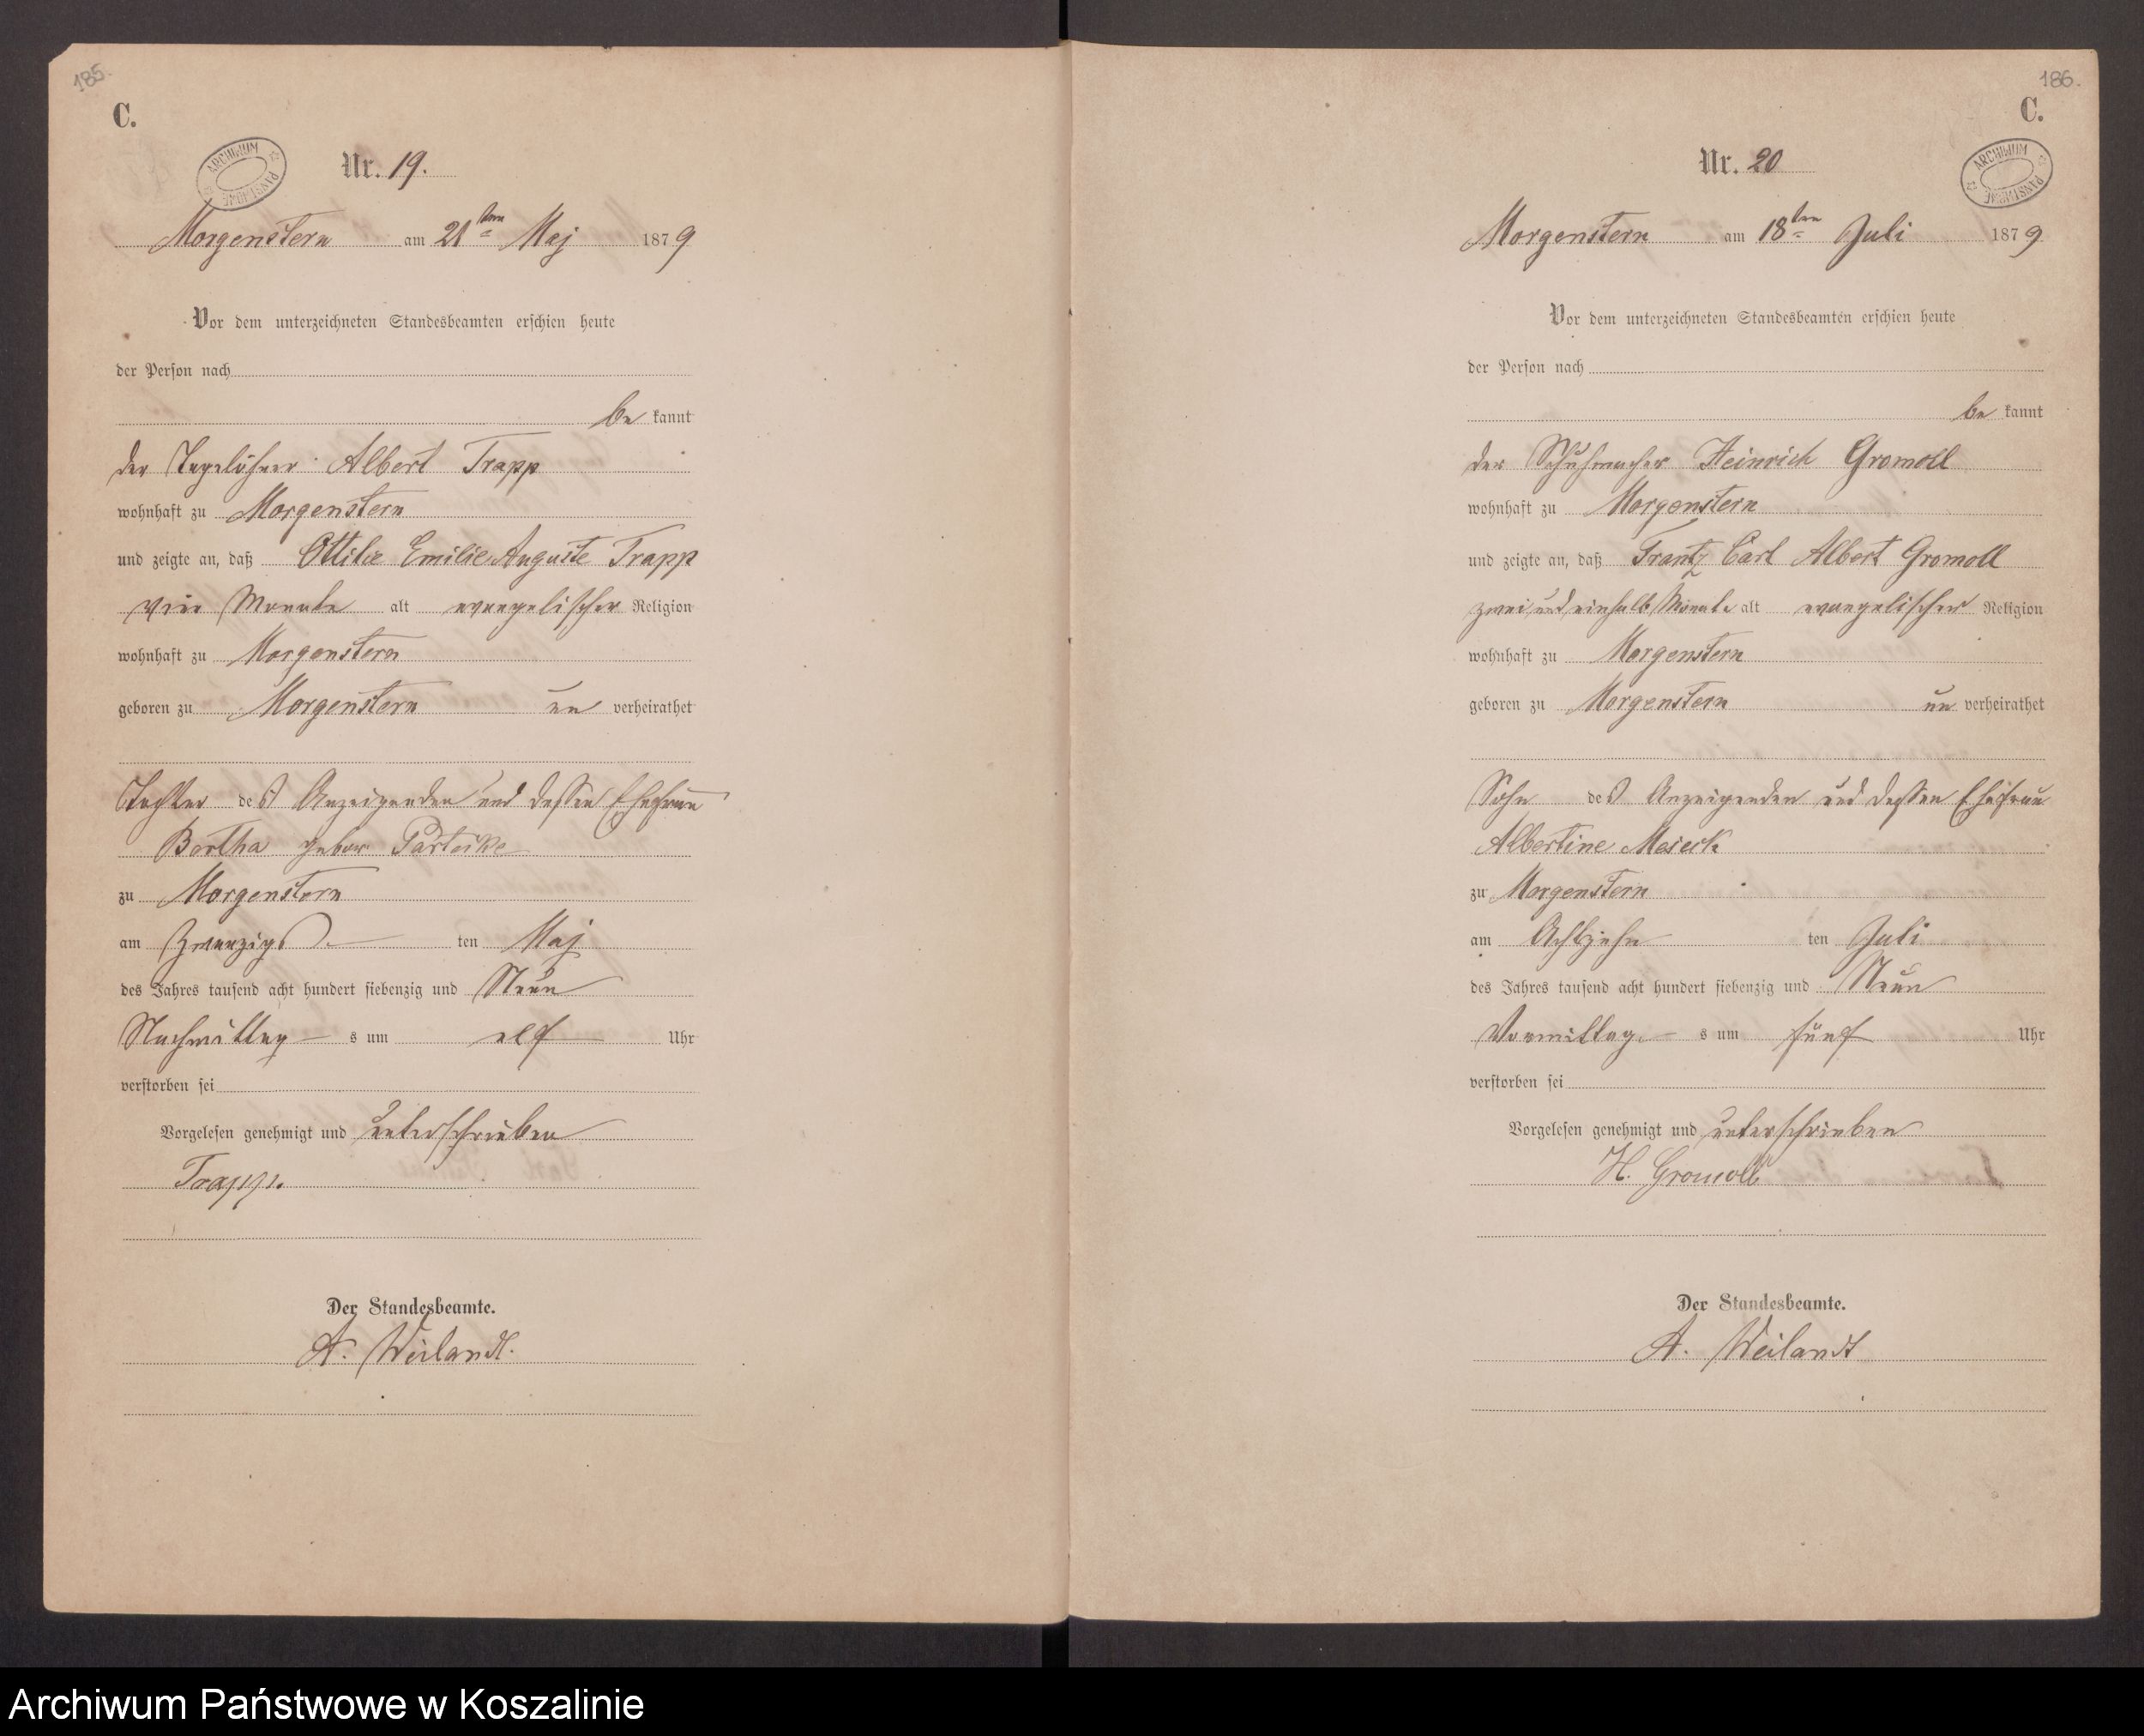 185.
C.
ARCHIWUM PAŃSTWOWE
Nr. 19.
Morgenstern am 21ten Maj 1879
Vor dem unterzeichneten Standesbeamten erschien heute
der Person nach
be kannt
der Tagelöhner Albert Trapp
wohnhaft zu Morgenstern
und zeigte an, daß Ottilie Emilie Auguste Trapp
vier Monate alt evangelischer Religion
wohnhaft zu Morgenstern
geboren zu Morgenstern un verheirathet
Tochter des Anzeigenden und dessen Ehefrau
Bertha gebor
zu Morgenstern
am Zwanzigs ten Maj
des Jahres tausend acht hundert siebenzig und Neun
Nachmittag s um elf Uhr
verstorben sei
Vorgelesen genehmigt und unterschrieben
Trapp.
Der Standesbeamte.
A. Weilandt.
186.
C.
ARCHIWUM PAŃSTWOWE
Nr. 20
Morgenstern am 18ten Juli 1879
Vor dem unterzeichneten Standesbeamten erschien heute
der Person nach
be kannt
der Schuhmacher Heinrich Gromoll
wohnhaft zu Morgenstern
und zeigte an, daß Frantz Carl Albert Gromoll
zwei und einhalb Monate alt evangelischer Religion
wohnhaft zu Morgenstern
geboren zu Morgenstern un verheirathet
Sohn des Anzeigenden und dessen Ehefrau
Albertine
zu Morgenstern
am Achtzehn ten Juli
des Jahres tausend acht hundert siebenzig und Neun
Vormittag s um fünf Uhr
verstorben sei
Vorgelesen genehmigt und unterschrieben
H. Gromoll
Der Standesbeamte.
A. Weilandt
Archiwum Państwowe w Koszalinie